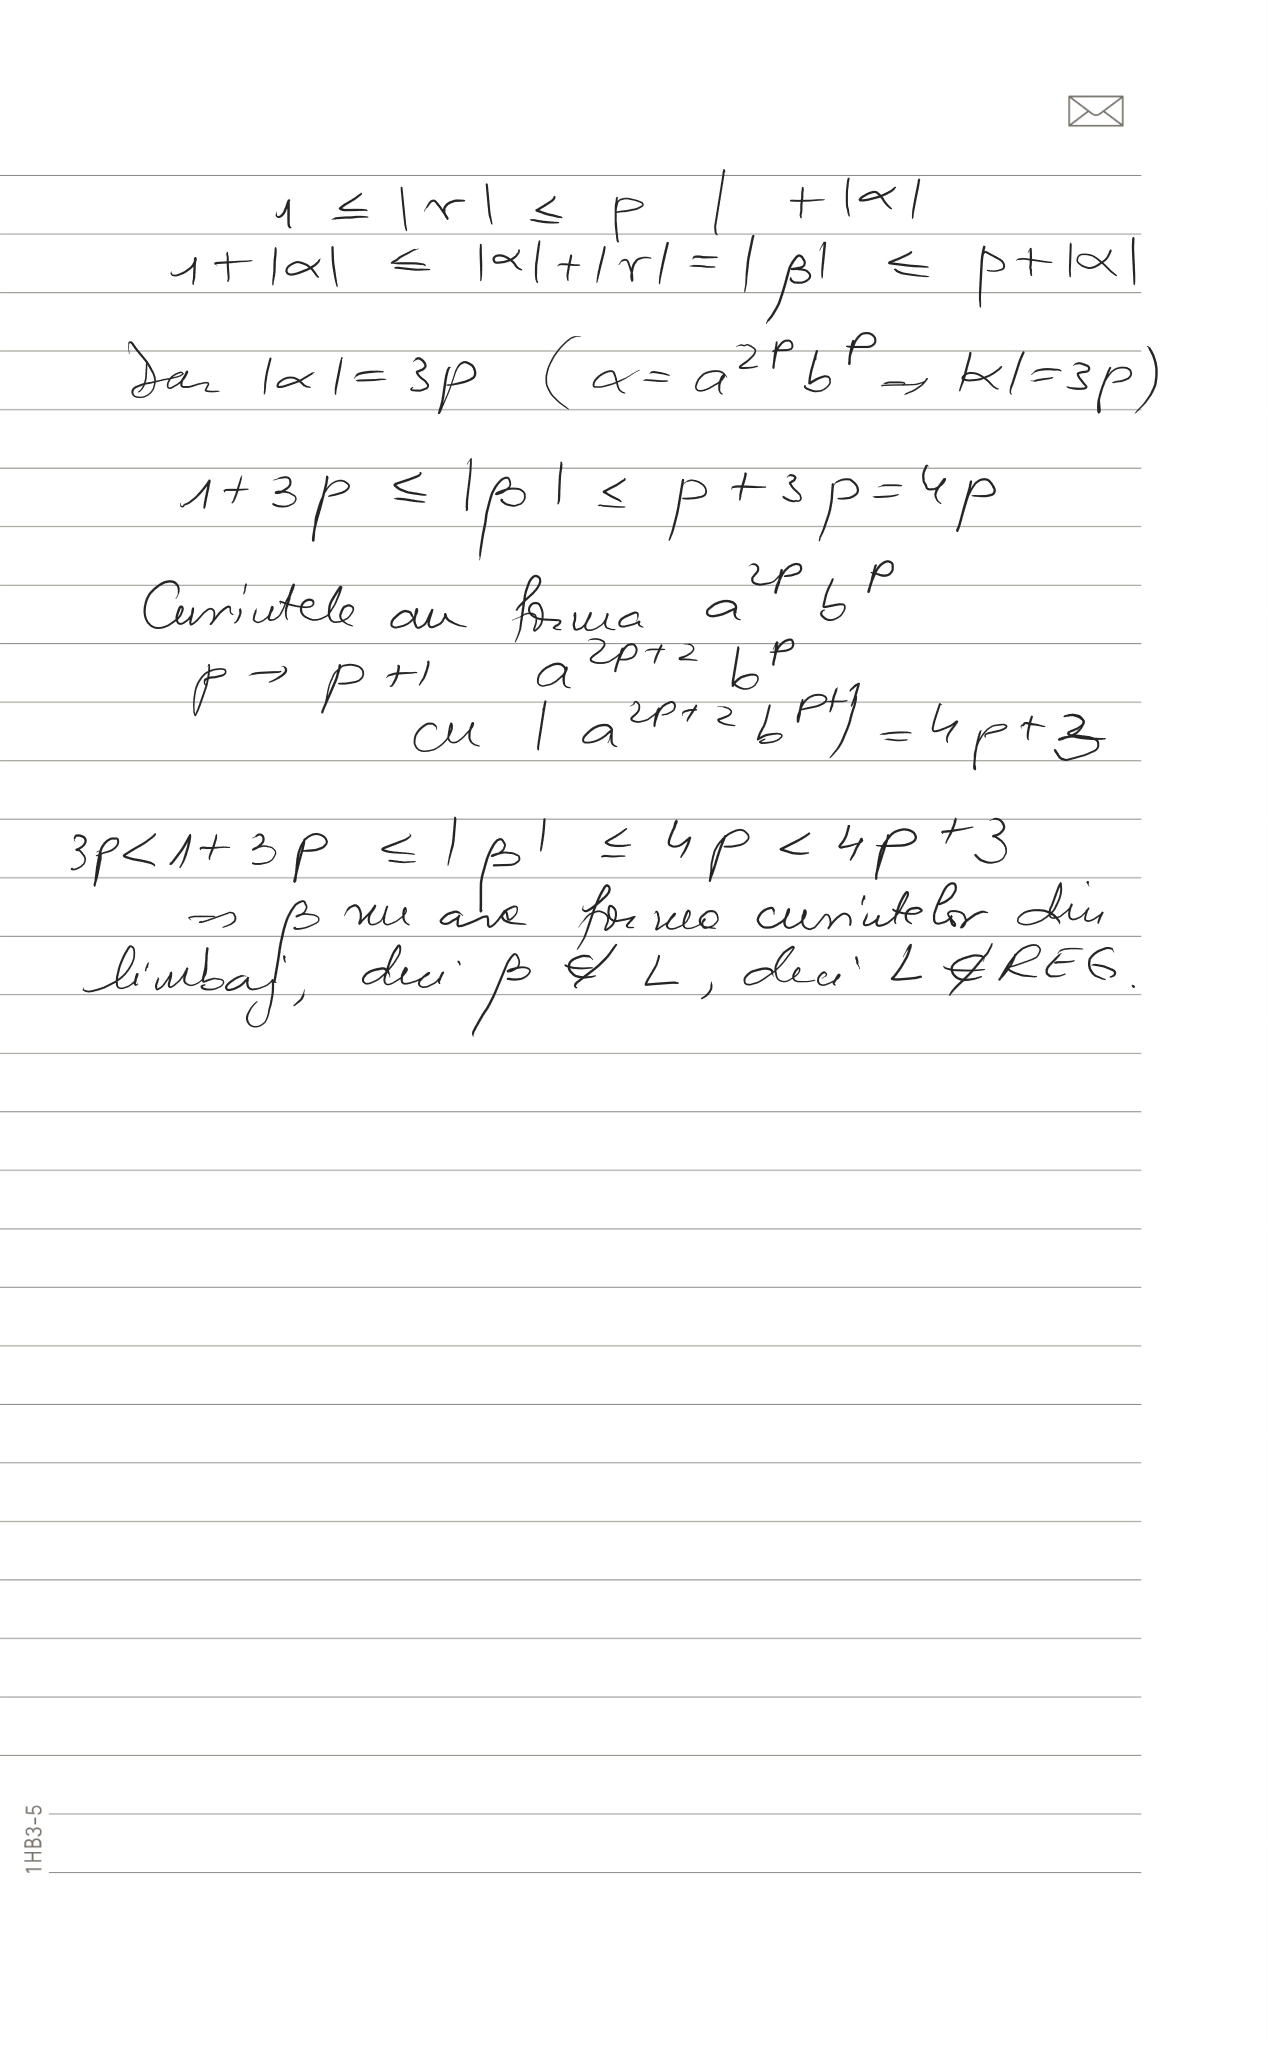 1 ≤ |r| ≤ p | +|α|
1+|α| ≤ |α|+|r| = |β| ≤ p+|α|
Dar |α| = 3p (α = a^{2p} b^{p} ⇒ |α| = 3p)
1+3p ≤ |β| ≤ p+3p = 4p
Cuvintele au forma a^{2p} b^{p}
p → p+1 a^{2p+2} b^{p}
cu |a^{2p+2} b^{p+1}| = 4p+3
3p < 1+3p ≤ |β| ≤ 4p < 4p+3
⇒ β nu are forma cuvintelor din
limbaj, deci β ∉ L, deci L ∉ REG.
1HB3-5